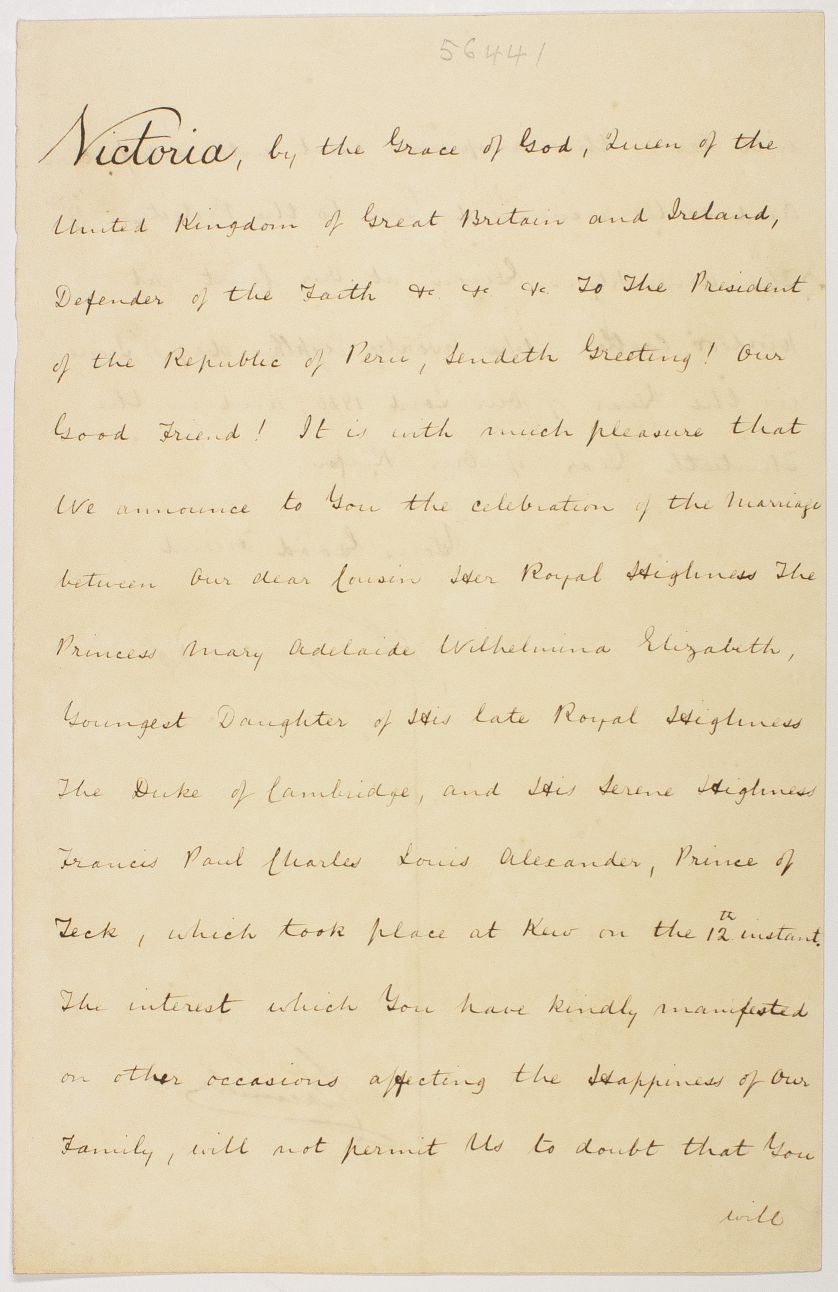 56441
Victoria, by the Grace of God, Queen of the
United Kingdom of Great Britain and Ireland,
Defender of the Faith &c. &c. &c. To The President
of the Republic of Peru, Sendeth Greeting! Our
Good Friend! It is with much pleasure that
We announce to You the celebration of the Marriage
between Our dear Cousin Her Royal Highness The
Princess Mary Adelaide Wilhelmina Elizabeth,
Youngest Daughter of His late Royal Highness
The Duke of Cambridge, and His Serene Highness
Francis Paul Charles Louis Alexander, Prince of
Teck, which took place at Kew on the 12th instant.
The interest which You have kindly manifested
on other occasions affecting the Happiness of Our
Family, will not permit Us to doubt that You
will